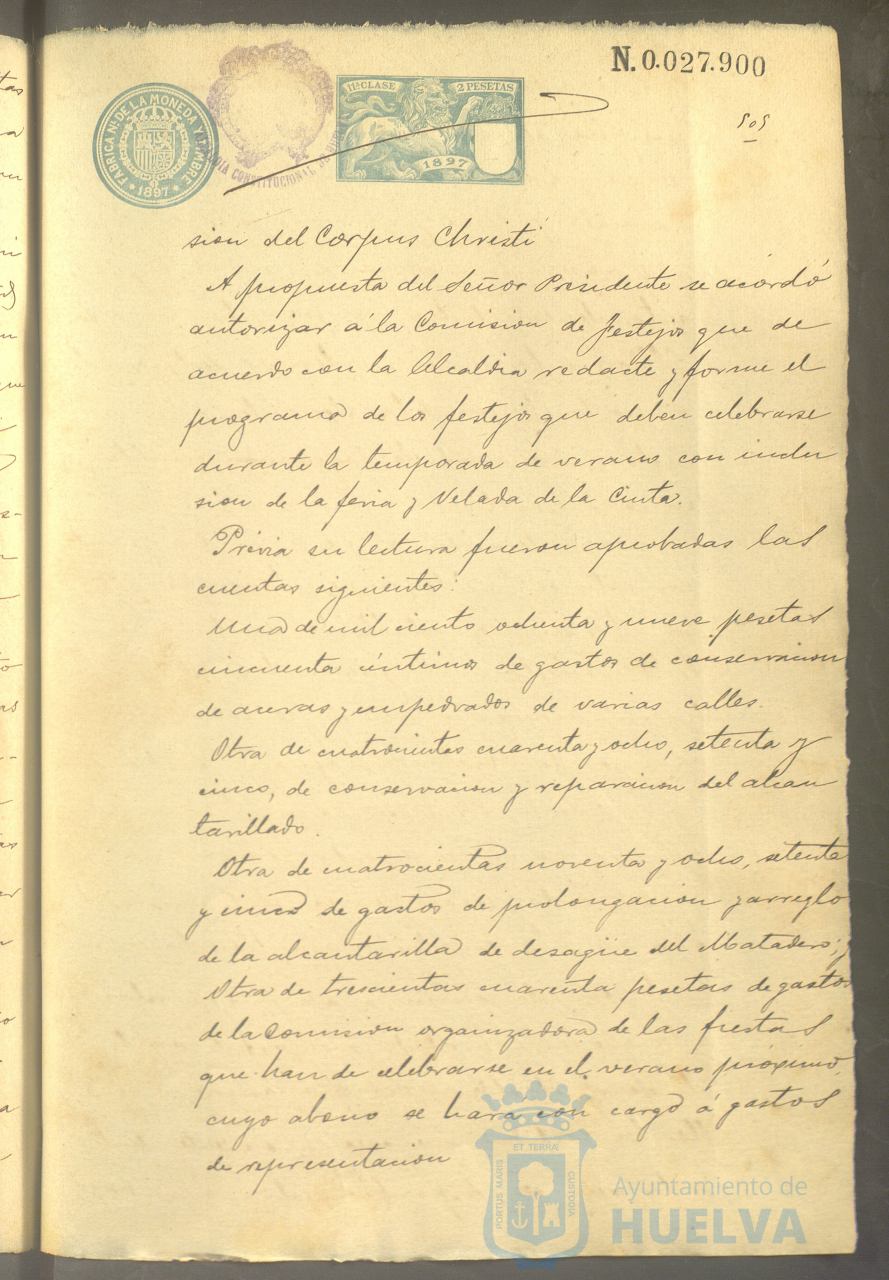 N.0.027.900
FABRICA Nal. DE LA MONEDA Y TIMBRE
* 1897 *
CONSTITUCIONAL
11ª CLASE
2 PESETAS
1897
505
sion del Corpus Christi
A propuesta del Señor Presidente se acordó
autorizar á la Comision de festejos que de
acuerdo con la Alcaldia redacte y forme el
programa de los festejos que deben celebrarse
durante la temporada de verano con inclu
sion de la feria y Velada de la Cinta.
Prévia su lectura fueron aprobadas las
cuentas siguientes:
Una de mil ciento ochenta y nueve pesetas
cincuenta céntimos de gastos de conservacion
de aceras y empedrados de varias calles.
Otra de cuatrocientas cuarenta y ocho, setenta y
cinco, de conservacion y reparacion del alcan
tarillado.
Otra de cuatrocientas noventa y ocho, setenta
y cinco de gastos de prolongacion y arreglo
de la alcantarilla de desagüe del Matadero; y
Otra de trescientas cuarenta pesetas de gastos
de la Comision organizadora de las fiestas
que han de celebrarse en el verano próximo,
cuyo abono se hará con cargo á gastos
de representacion
PORTUS MARIS
ET TERRA
CUSTODIA
Ayuntamiento de
HUELVA